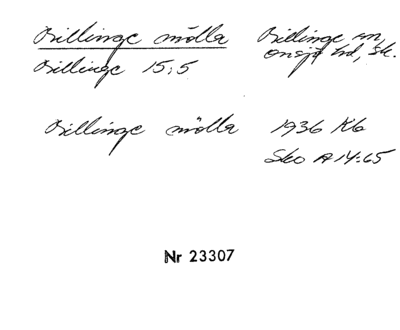 Billinge mölla Billinge sn,
Billinge 15:5 onsjö hd, Sk.
Billinge mölla 1936 K6
Sko A 14:65
Nr 23307